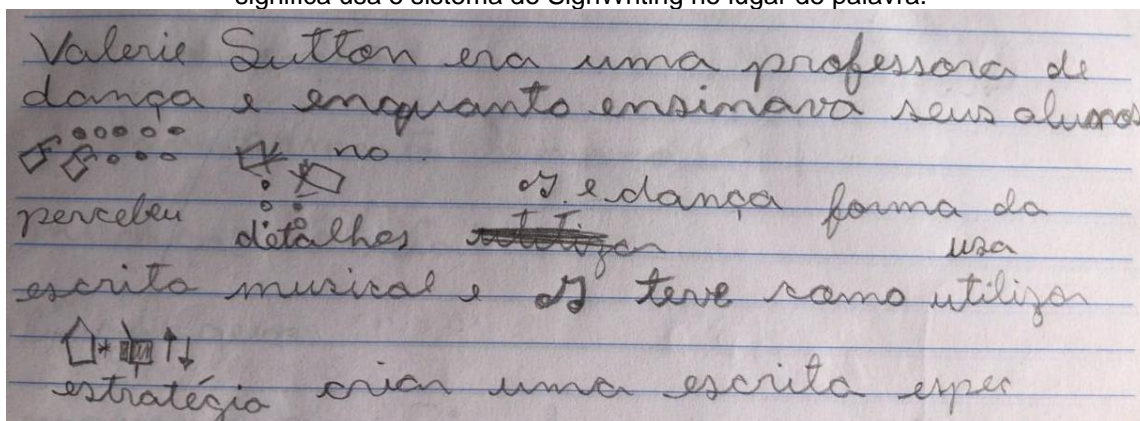 significa usa o sistema do SignWriting no lugar de palavra.
Valerie Sutton era uma professora de
dança e enquanto ensinava seus alunos
no.
e dança forma da
percebeu detalhes usa
escrita musical e teve como utilizar
estratégia criar uma escrita espec